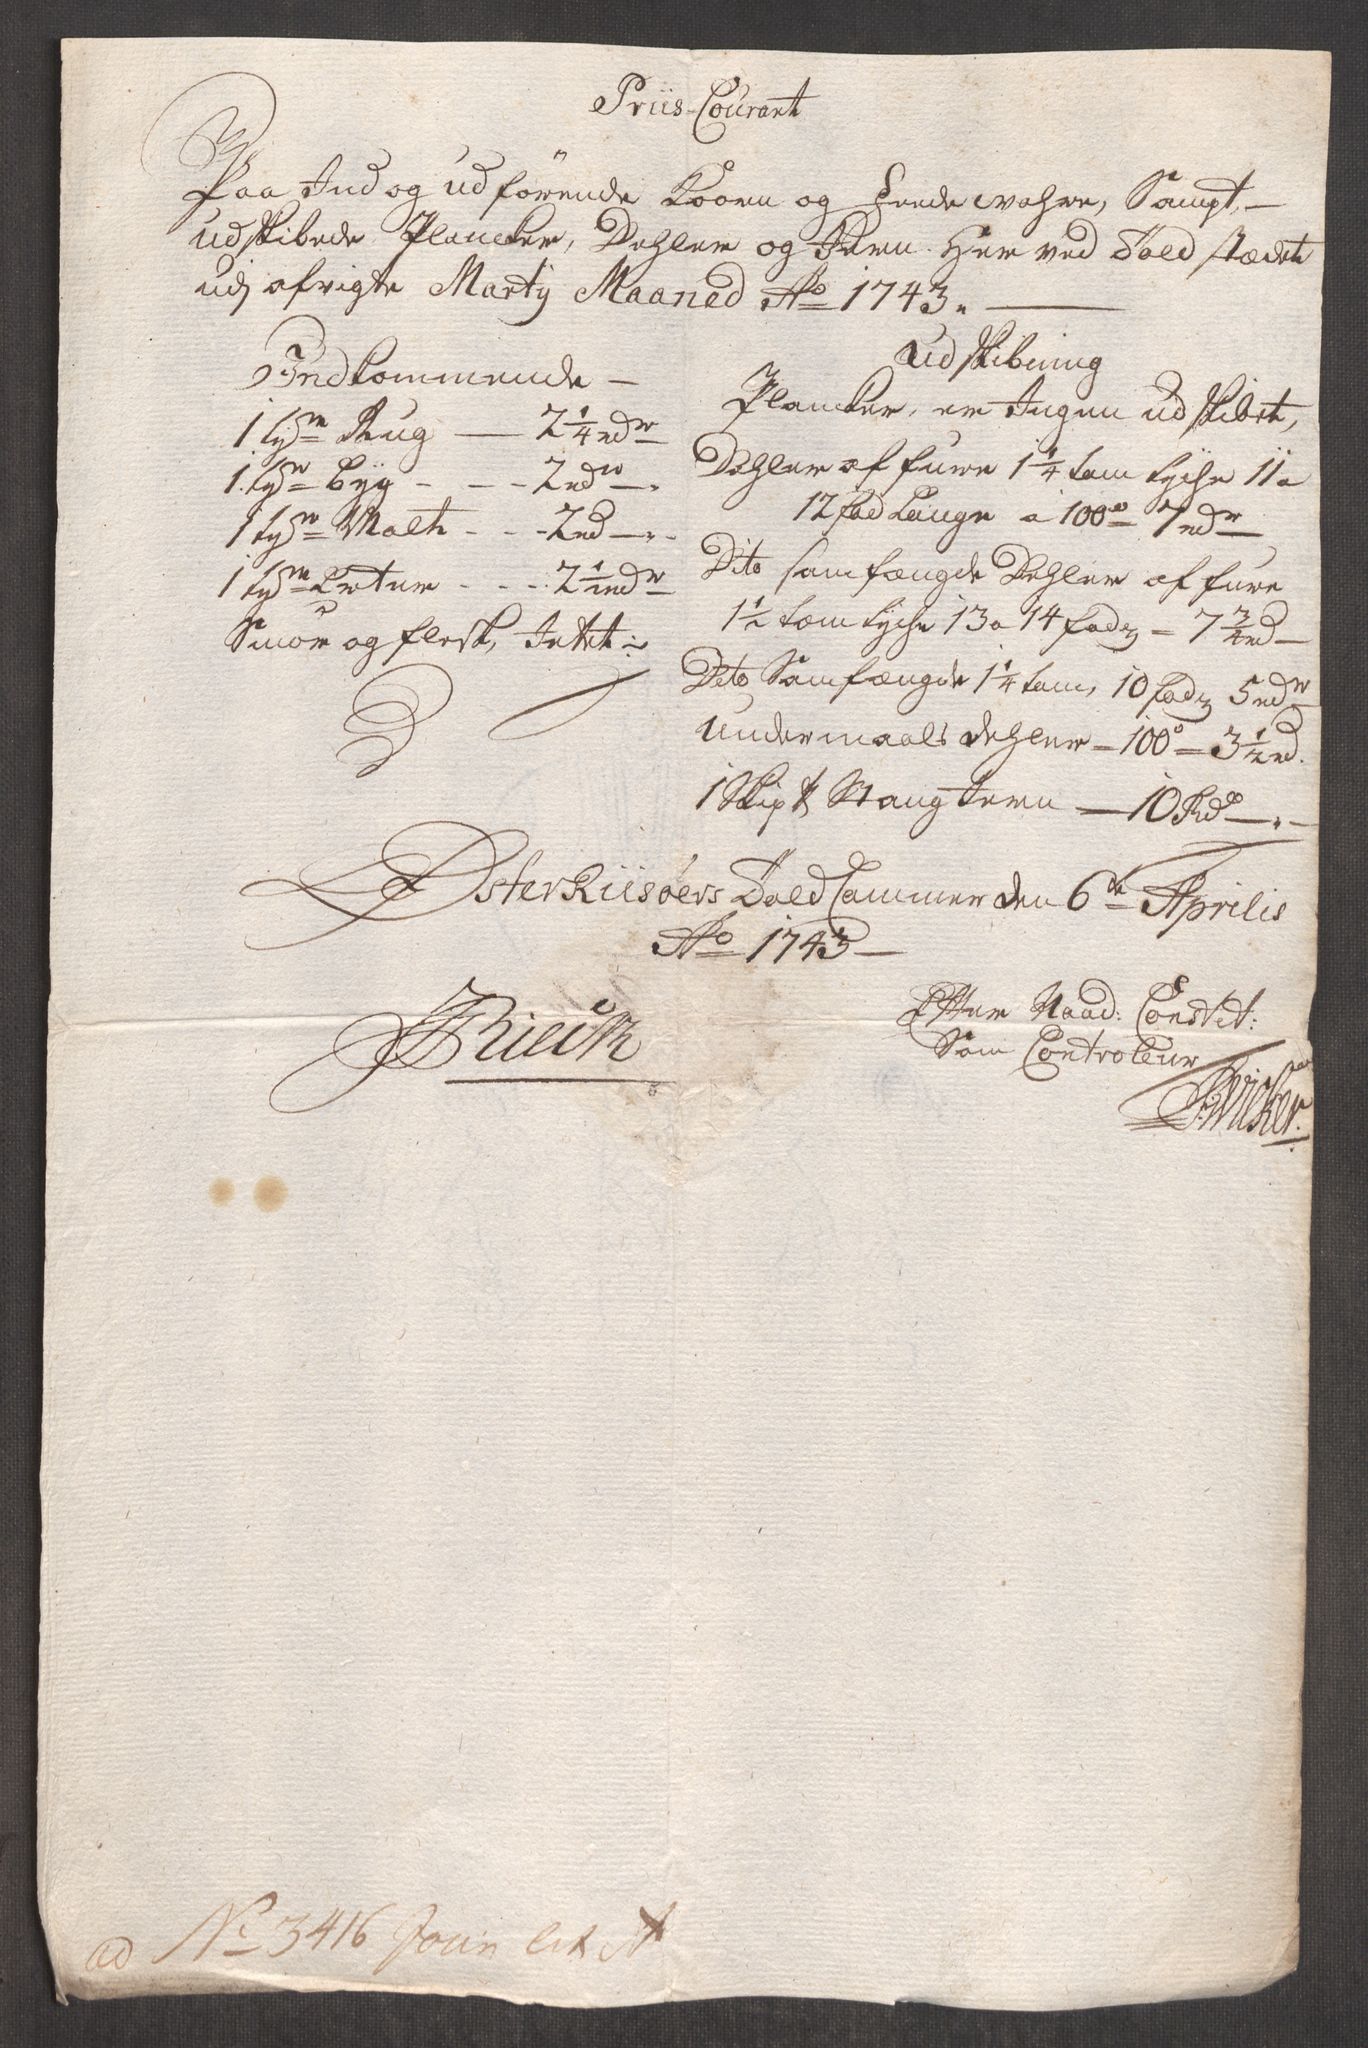 Priis-Courant
Paa Ind og udførende Koorn og Feede wahre, Sampt,
udskibede Plancker, Dehler og Jern. Her ved Told stædet
udj afvigte Martij Maaned Ao 1743.
Indkommende
1 tydr Rug 2 1/4 rdr
1 tydr Byg 2 rdr
1 tydr Malt 2 rd
1 tydr Ærter 2 1/2 rdr
Smør og flesk, Intet
Udskibning
Plancker, er Ingen udskibet,
Dehler af fure 1 1/4 tom tyche 11 a
12 fod Lange a 100de 7 rdr
Dito samfængde Dehler af fure
1 1/2 tom tyche 13 a 14 fod 7 3/4 rd
Dito Samfængde 1 1/4 tom, 10 fod 5 rdr
Undermaals dehler 100de 3 1/2 rd.
1 Skip ℔ Stang Jern 10 Rdr
Østerriisøers Told Cammer den 6te Aprilis
Ao 1743
Efter Naad: Constit:
Som Controleur
ad No 3416 Jour Lit A